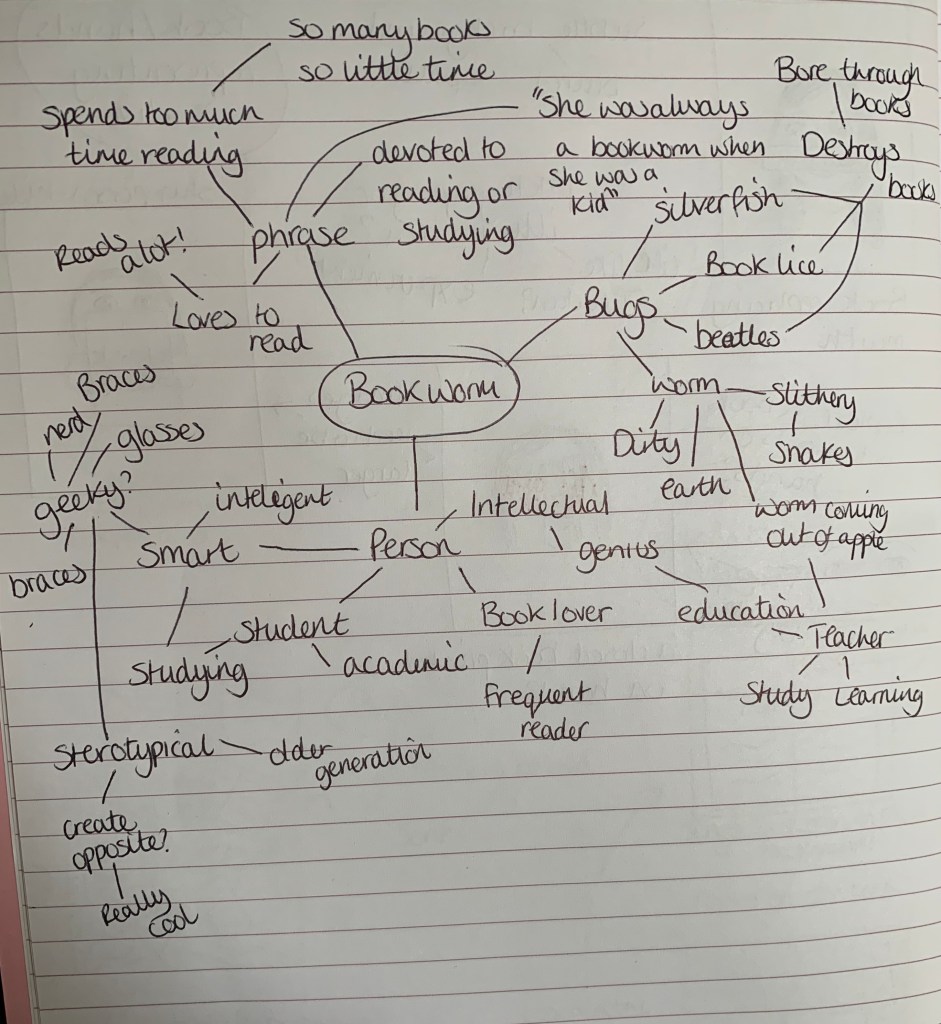 so many books
so little time
Bore through
books
Spends too much
time reading
"She was always
a bookworm when
she was a
kid"
devoted to
reading or
studying
Destroys
books
silverfish
Reads
a lot!
phrase
Book lice
Loves to
read
Bugs
beatles
Braces
Bookworm
worm
Slithery
nerd
glasses
Dirty
Snakes
geeky?
intelegent
Intellectual
earth
worm coming
out of apple
Smart
Person
genius
braces
Student
Book lover
education
Teacher
Studying
academic
frequent
reader
Study
Learning
Sterotypical
older
generation
create
opposite?
Really
cool